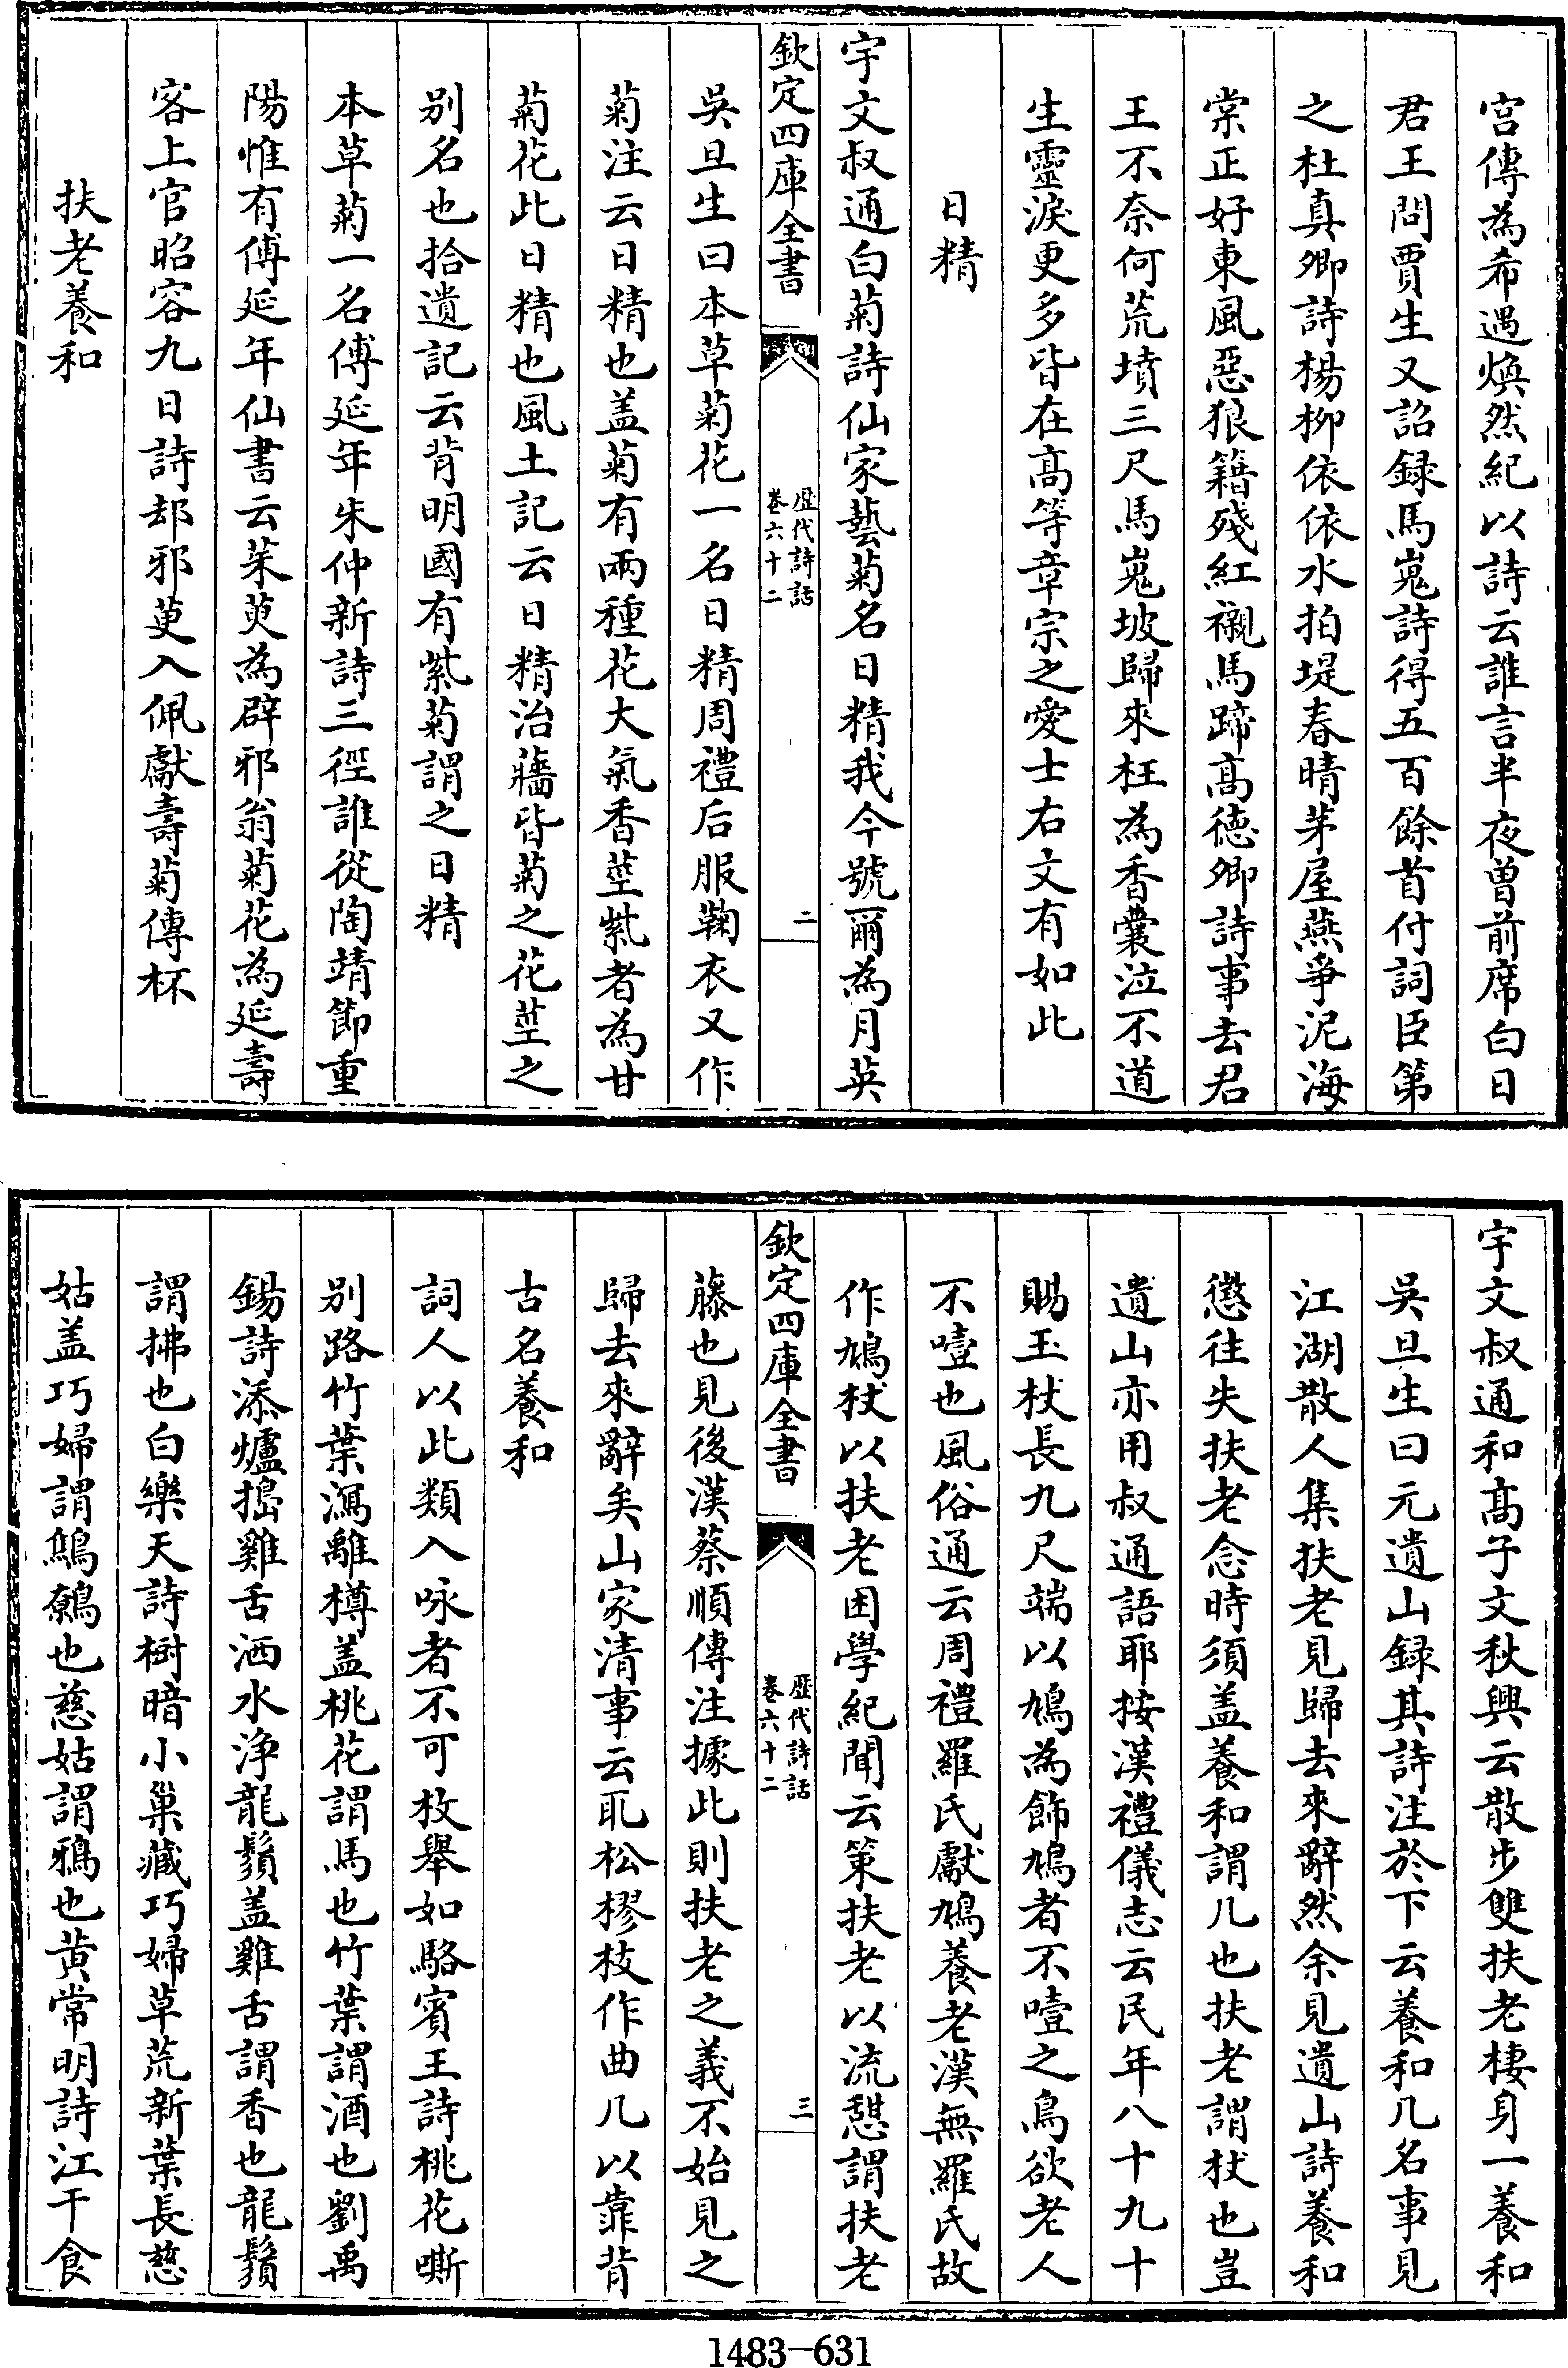 宫傳為希遇煥然紀以詩云誰言半夜曾前席白日
君王問賈生又詔録馬嵬詩得五百餘首付詞臣第
之杜真卿詩楊柳依依水拍堤春晴茅屋燕爭泥海
棠正好東風惡狼籍殘紅襯馬蹄髙德卿詩事去君
王不奈何荒墳三尺馬嵬坡歸來枉為香囊泣不道
生靈淚更多皆在髙等章宗之愛士右文有如此
日精
宇文叔通白菊詩仙家藝菊名日精我今號爾為月英
欽定四庫全書
歴代詩話
卷六十二
二
吳旦生曰本草菊花一名日精周禮后服鞠衣又作
菊注云日精也盖菊有兩種花大氣香莖紫者為甘
菊花此日精也風土記云日精治蘠皆菊之花莖之
别名也拾遺記云背明國有紫菊謂之日精
本草菊一名傅延年朱仲新詩三徑誰從陶靖節重
陽惟有傅延年仙書云茱萸為辟邪翁菊花為延壽
客上官昭容九日詩却邪萸入佩獻壽菊傳杯
扶老養和
宇文叔通和髙子文秋興云散步雙扶老棲身一養和
吳旦生曰元遺山録其詩注於下云養和几名事見
江湖散人集扶老見歸去來辭然余見遺山詩養和
懲往失扶老念時須盖養和謂几也扶老謂杖也豈
遺山亦用叔通語耶按漢禮儀志云民年八十九十
賜玉杖長九尺端以鳩為飾鳩者不噎之鳥欲老人
不噎也風俗通云周禮羅氏獻鳩養老漢無羅氏故
作鳩杖以扶老困學紀聞云策扶老以流憇謂扶老
欽定四庫全書
歴代詩話
卷六十二
三
藤也見後漢蔡順傳注據此則扶老之義不始見之
歸去來辭矣山家清事云㪅松樛枝作曲几以靠背
古名養和
詞人以此類入咏者不可枚舉如駱賓王詩桃花嘶
别路竹葉瀉離樽盖桃花謂馬也竹葉謂酒也劉禹
錫詩添爐擣雞舌洒水浄龍鬚盖雞舌謂香也龍鬚
謂拂也白樂天詩樹暗小巢藏巧婦草荒新葉長慈
姑盖巧婦謂鷦鷯也慈姑謂鴉也黄常明詩江干食